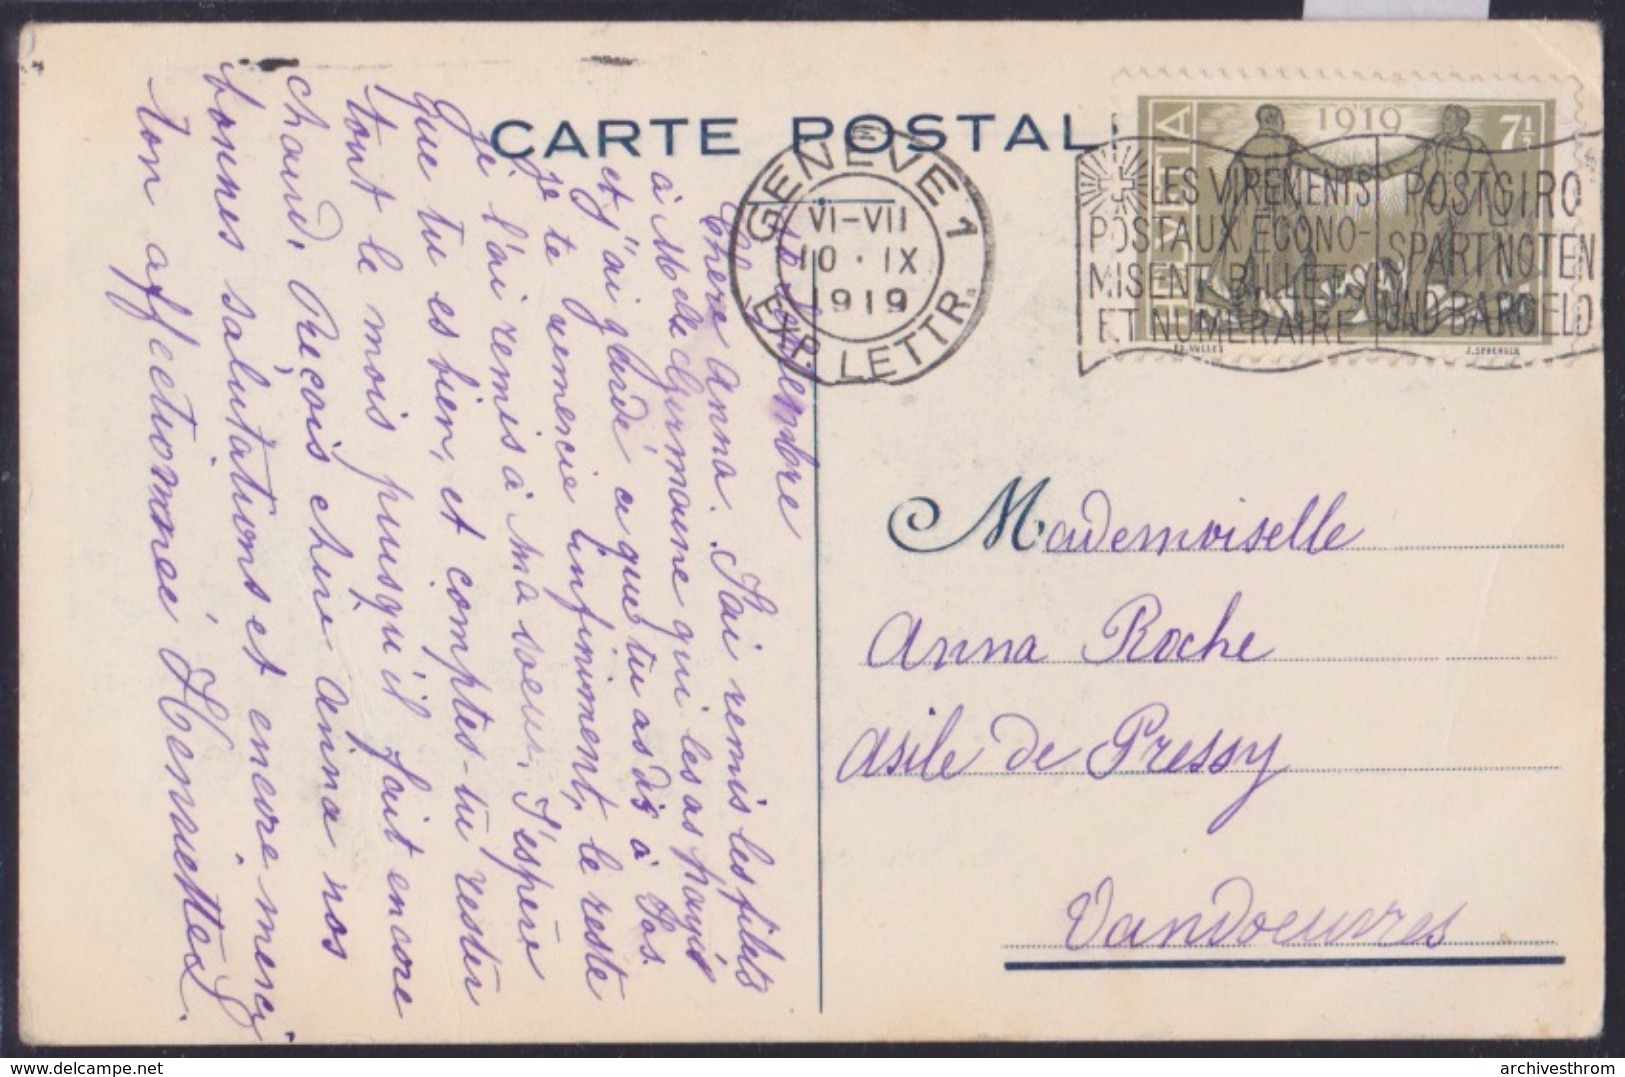 CARTE POSTAL
HELVETIA
1919
7½
ED. VALLET
J. SPRENGER
GENÈVE 1
VI-VII
10 · IX
1919
EXP. LETTR.
LES VIREMENTS
POSTAUX ÉCONO-
MISENT BILLETS
ET NUMÉRAIRE
POSTGIRO
SPART NOTEN
UND BARGELD
10 Septembre
Chère Anna. J'ai remis les filets
à Mlle Germaine qui les as payés
et j'ai gardé ce que tu as dis à
je te remercie infiniment, le reste
je l'ai remis à ma soeur. J'espère
que tu es bien, et comptes-tu rester
tout le mois puisqu'il fait encore
chaud. Reçois chère Anna nos
bonnes salutations et encore merci
Ton affectionnée Henriette
Mademoiselle
Anna Roche
asile de Pressy
Vandoeuvres
www.delcampe.net
archivesthrom